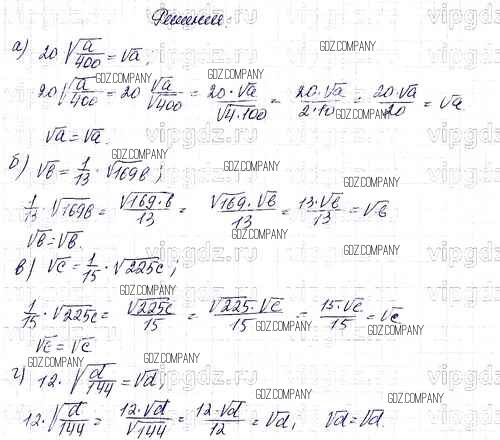 Решение:
а) 20√(a/400) = √a;
20√(a/400) = 20 √a/√400 = 20·√a/√(4·100) = 20·√a/(2·10) = 20·√a/20 = √a
√a = √a.
б) √b = 1/13 · √169b;
1/13 · √169b = √(169·b)/13 = √169·√b/13 = 13·√b/13 = √b
√b = √b.
в) √c = 1/15 · √225c;
1/15 · √225c = √225c/15 = √225·√c/15 = 15·√c/15 = √c
√c = √c
г) 12·√(d/144) = √d;
12·√(d/144) = 12·√d/√144 = 12·√d/12 = √d; √d = √d.
GDZ.COMPANY
vipgdz.ru